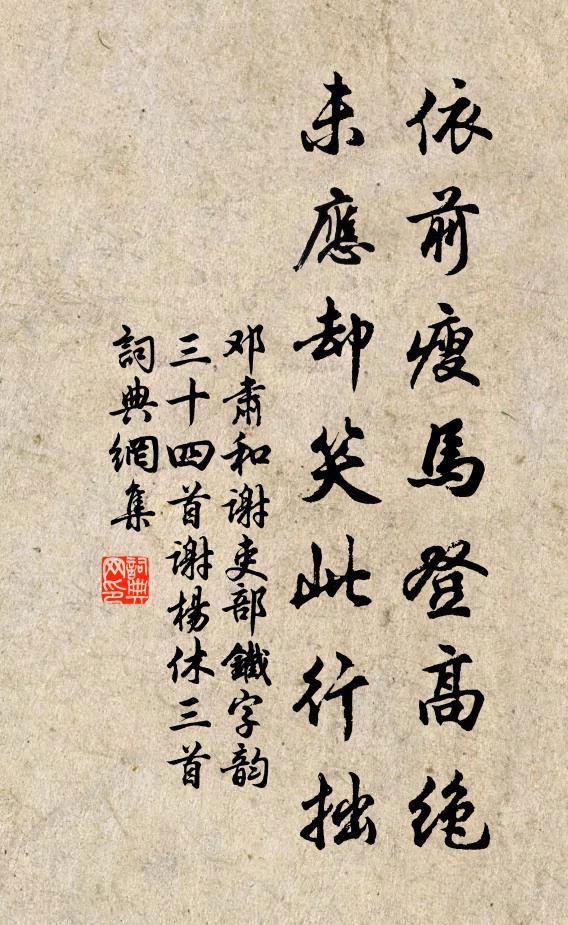 依前瘦馬登高絶
未應却笑此行拙
邓肅和谢吏部鐵字韵
三十四首谢楊休三首
詞典網集
詞典网印